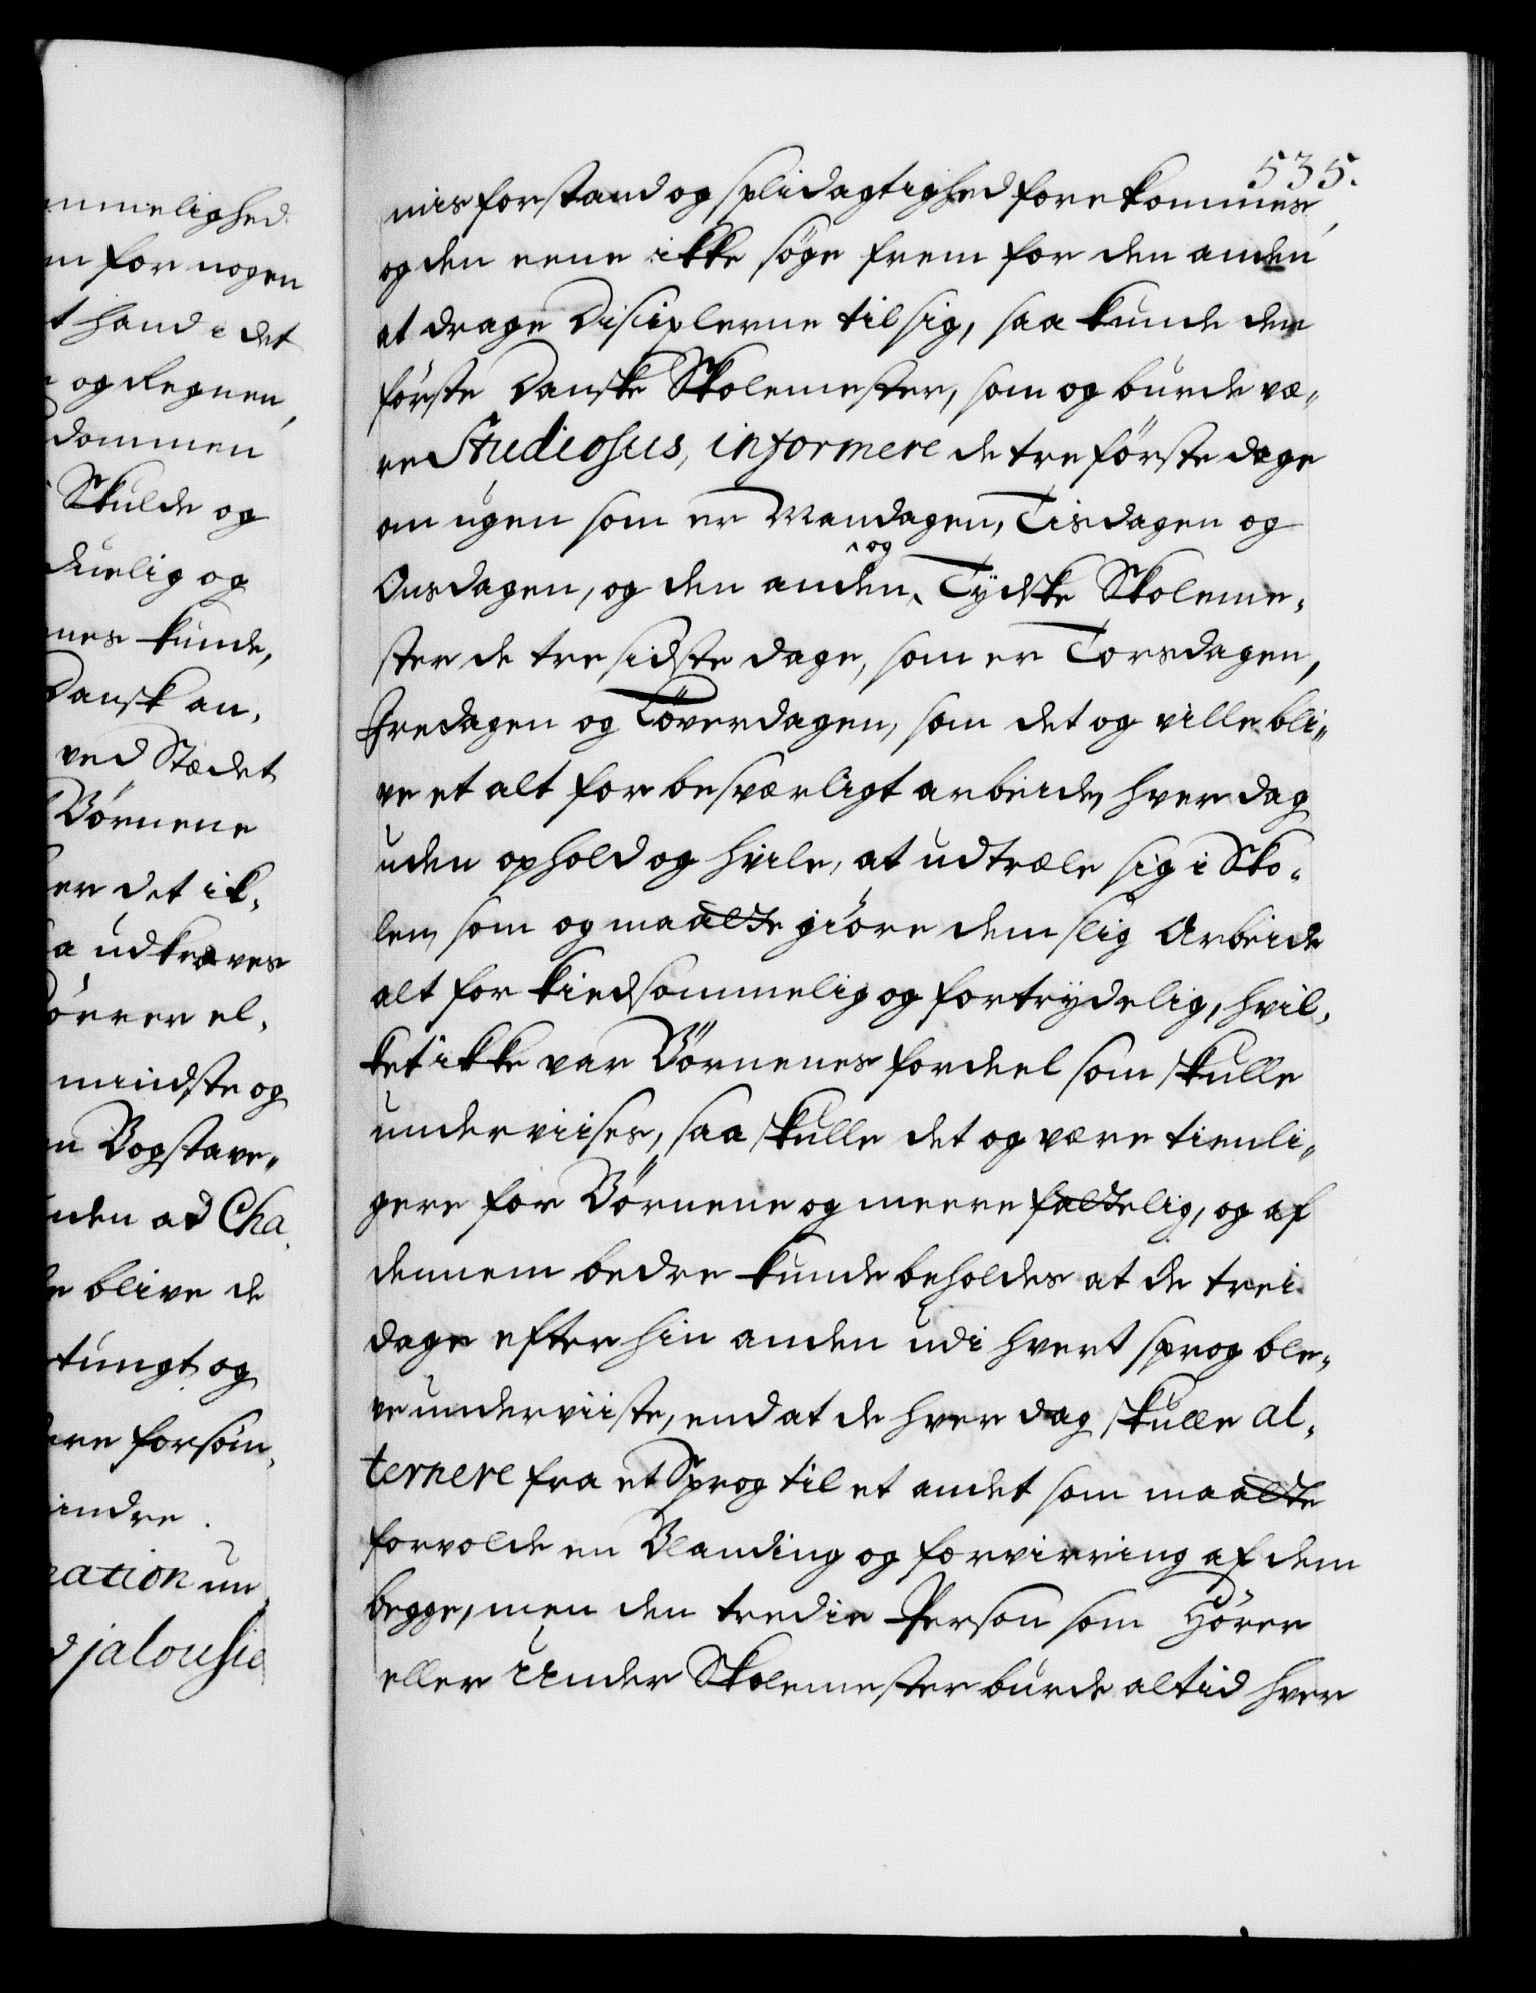 mmelighed
m for nogen
t hand i det
og Regnen,
dommen
Skulde og
duelig og
nes kunde,
Dansk an,
ved Stædet
Börnene
er det ik,
a udkræves
örrer el,
mindste og
n Bogstave,,
nden ad Cha
e blive de
tungt og
re forsöm,
indre.
ration un
jalousie
535.
misforstand og splidagtighed forekommes,
og den eene ikke söge frem for den anden
at drage Disciplerne til sig, saa kunde den
förste Danske Skolemester, som og burde væ,
re Studiosus, informere de tre förste dage
om ugen som er Mandagen, Tisdagen og
Onsdagen, og den anden og Tydske Skoleme,
ster de tre sidste dage, som er Torsdagen,
Fredagen og Löverdagen, som det og ville bli,,
ve et alt for besværligt arbeide, hver dag
uden ophold og hvile, at udtræle sig i Sko,
len, som og maatte giöre dem slig Arbeide
alt for kiedsommelig og fortrydelig, hvil,
ket ikke var Börnenes fordeel som skulle
underviises, saa skulle det og være tienli,,
gere for Börnene og meere fattelig, og af
dennem bedre kunde beholdes at de trei
dage efter hin anden udi hvert sprog ble,
ve underviiste, end at de hver dag skulle al,
ternere fra et Sprog til et andet som maatte
forvolde en Blanding og forvirring af dem
begge, men den tredie Person som Hörer
eller Under Skolemester burde altid hver